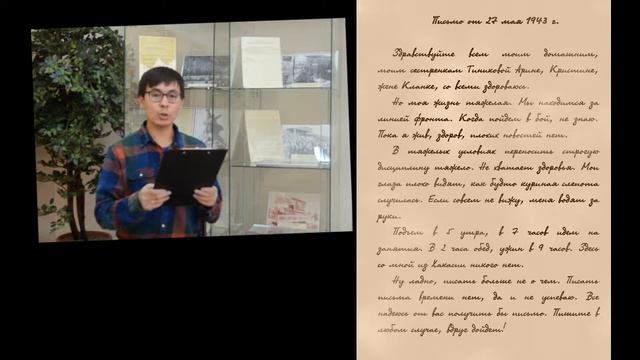 Письмо от 27 мая 1943 г.
Здравствуйте всем моим домашним,
моим сестренкам Тиниковой Арине, Кристине,
жене Кланке, со всеми здороваюсь.
Но моя жизнь тяжелая. Мы находимся за
линией фронта. Когда пойдем в бой, не знаю.
Пока я жив, здоров, плохих новостей нет.
В тяжелых условиях переносить строгую
дисциплину тяжело. Не хватает здоровья. Мои
глаза плохо видят, как будто куриная слепота
случилась. Если совсем не вижу, меня водят за
руки.
Подъем в 5 утра, в 7 часов идем на
занятия. В 2 часа обед, ужин в 9 часов. Здесь
со мной из Хакасии никого нет.
Ну ладно, писать больше не о чем. Писать
письма времени нет, да и не успеваю. Все
надеюсь от вас получить бы письмо. Пишите в
любом случае, вдруг дойдет!